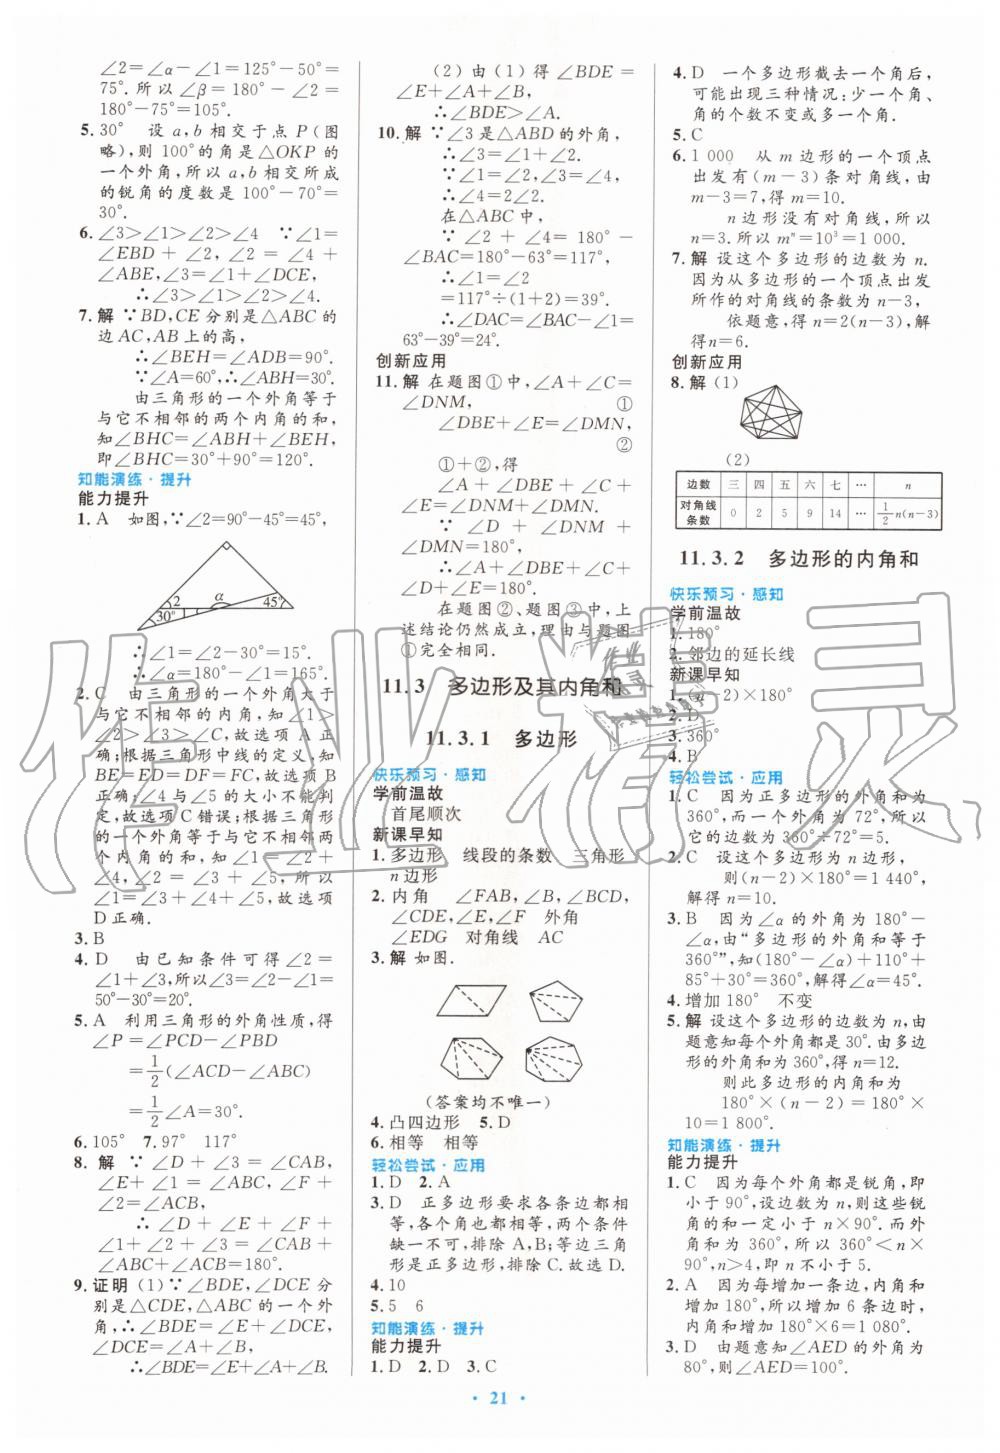 ∠2=∠α-∠1=125°-50°=
75°. 所以∠β=180°-∠2=
180°-75°=105°.
5. 30° 设 a,b 相交于点 P(图
略),则 100°的角是△OKP 的
一个外角,所以 a,b 相交所成
的锐角的度数是 100°-70°=
30°.
6. ∠3>∠1>∠2>∠4 ∵∠1=
∠EBD+∠2,∠2=∠4+
∠ABE,∠3=∠1+∠DCE,
∴∠3>∠1>∠2>∠4.
7. 解 ∵BD,CE 分别是△ABC 的
边 AC,AB 上的高,
∴∠BEH=∠ADB=90°.
∵∠A=60°,∴∠ABH=30°.
由三角形的一个外角等于
与它不相邻的两个内角的和,
知∠BHC=∠ABH+∠BEH,
即∠BHC=30°+90°=120°.
知能演练·提升
能力提升
1. A 如图,∵∠2=90°-45°=45°,
2 α 45°
30° 1
∴∠1=∠2-30°=15°.
∴∠α=180°-∠1=165°.
2. C 由三角形的一个外角大于
与它不相邻的内角,知∠1>
∠2>∠3>∠C,故选项 A
正确;根据三角形中线的定义,知
BE=ED=DF=FC,故选项 B
正确;∠4与∠5的大小不能判
定,故选项 C 错误;根据三角形
的一个外角等于与它不相邻的两
个内角的和,知∠1=∠2+
∠4,∠2=∠3+∠5,所以
∠1=∠3+∠4+∠5,故选项
D 正确.
3. B
4. D 由已知条件可得∠2=
∠1+∠3,所以∠3=∠2-∠1=
50°-30°=20°.
5. A 利用三角形的外角性质,得
∠P=∠PCD-∠PBD
=1/2(∠ACD-∠ABC)
=1/2∠A=30°.
6. 105° 7. 97° 117°
8. 解 ∵∠D+∠3=∠CAB,
∠E+∠1=∠ABC,∠F+
∠2=∠ACB,
∴∠D+∠E+∠F+
∠1+∠2+∠3=∠CAB+
∠ABC+∠ACB=180°.
9. 证明 (1)∵∠BDE,∠DCE 分
别是△CDE,△ABC 的一个外
角,∴∠BDE=∠E+∠DCE,
∠DCE=∠A+∠B,
∴∠BDE=∠E+∠A+∠B.
(2)由(1)得∠BDE=
∠E+∠A+∠B,
∴∠BDE>∠A.
10. 解 ∵∠3是△ABD 的外角,
∴∠3=∠1+∠2.
∴∠4=2∠2.
在△ABC 中,
∵∠2+∠4=180°-
∠BAC=180°-63°=117°,
∴∠1=∠2
=117°÷(1+2)=39°.
∴∠DAC=∠BAC-∠1=
63°-39°=24°.
创新应用
11. 解 在题图①中,∠A+∠C=
∠DNM, ①
∠DBE+∠E=∠DMN,
②
①+②,得
∠A+∠DBE+∠C+
∠E=∠DNM+∠DMN.
∵∠D+∠DNM+
∠DMN=180°,
∴∠A+∠DBE+∠C+
∠D+∠E=180°.
在题图②、题图③中,上
述结论仍然成立,理由与题图
①完全相同.
11.3 多边形及其内角和
11.3.1 多边形
快乐预习·感知
学前温故
首尾顺次
新课早知
1. 多边形 线段的条数 三角形
n边形
2. 内角 ∠FAB,∠B,∠BCD,
∠CDE,∠E,∠F 外角
∠EDG 对角线 AC
3. 解 如图.
(答案均不唯一)
4. 凸四边形 5. D
6. 相等 相等
轻松尝试·应用
1. D 2. A
3. D 正多边形要求各条边都相
等,各个角也都相等,两个条件
缺一不可,排除 A,B;等边三角
形是正多边形,排除 C. 故选 D.
4. 10
5. 5 6
知能演练·提升
能力提升
1. D 2. D 3. C
4. D 一个多边形截去一个角后,
可能出现三种情况:少一个角、
角的个数不变或多一个角.
5. C
6. 1 000 从 m 边形的一个顶点
出发有(m-3)条对角线,由
m-3=7,得 m=10.
n边形没有对角线,所以
n=3. 所以 mⁿ=10³=1 000.
7. 解 设这个多边形的边数为 n.
因为从多边形的一个顶点出发
所作的对角线的条数为 n-3,
依题意,得 n=2(n-3),解
得 n=6.
创新应用
8. 解 (1)
(2)
边数 三 四 五 六 七 … n
对角线条数 0 2 5 9 14 … 1/2 n(n-3)
11.3.2 多边形的内角和
快乐预习·感知
学前温故
1. 180°
2. 邻边的延长线
新课早知
1. (n-2)×180°
2. D
3. 360°
4. B
轻松尝试·应用
1. C 因为正多边形的外角和为
360°,而一个外角为 72°,所以
它的边数为 360°÷72°=5.
2. C 设这个多边形为 n 边形,
则(n-2)×180°=1 440°,
解得 n=10.
3. B 因为∠α的外角为 180°-
∠α,由“多边形的外角和等于
360°”,知(180°-∠α)+110°+
85°+30°=360°,解得∠α=45°.
4. 增加 180° 不变
5. 解 设这个多边形的边数为 n,由
题意知每个外角都是 30°. 由多边
形的外角和为 360°,得 n=12.
则此多边形的内角和为
180°×(n-2)=180°×
10=1 800°.
知能演练·提升
能力提升
1. C 因为每个外角都是锐角,即
小于 90°,设边数为 n,则这些锐
角的和一定小于 n×90°. 而外
角和为 360°,所以 360°<n×
90°,n>4,即 n 不小于 5.
2. A 因为每增加一条边,内角和
增加 180°,所以增加 6 条边时,
内角和增加 180°×6=1 080°.
3. D 由题意知∠AED 的外角为
80°,则∠AED=100°.
· 21 ·
作业精灵